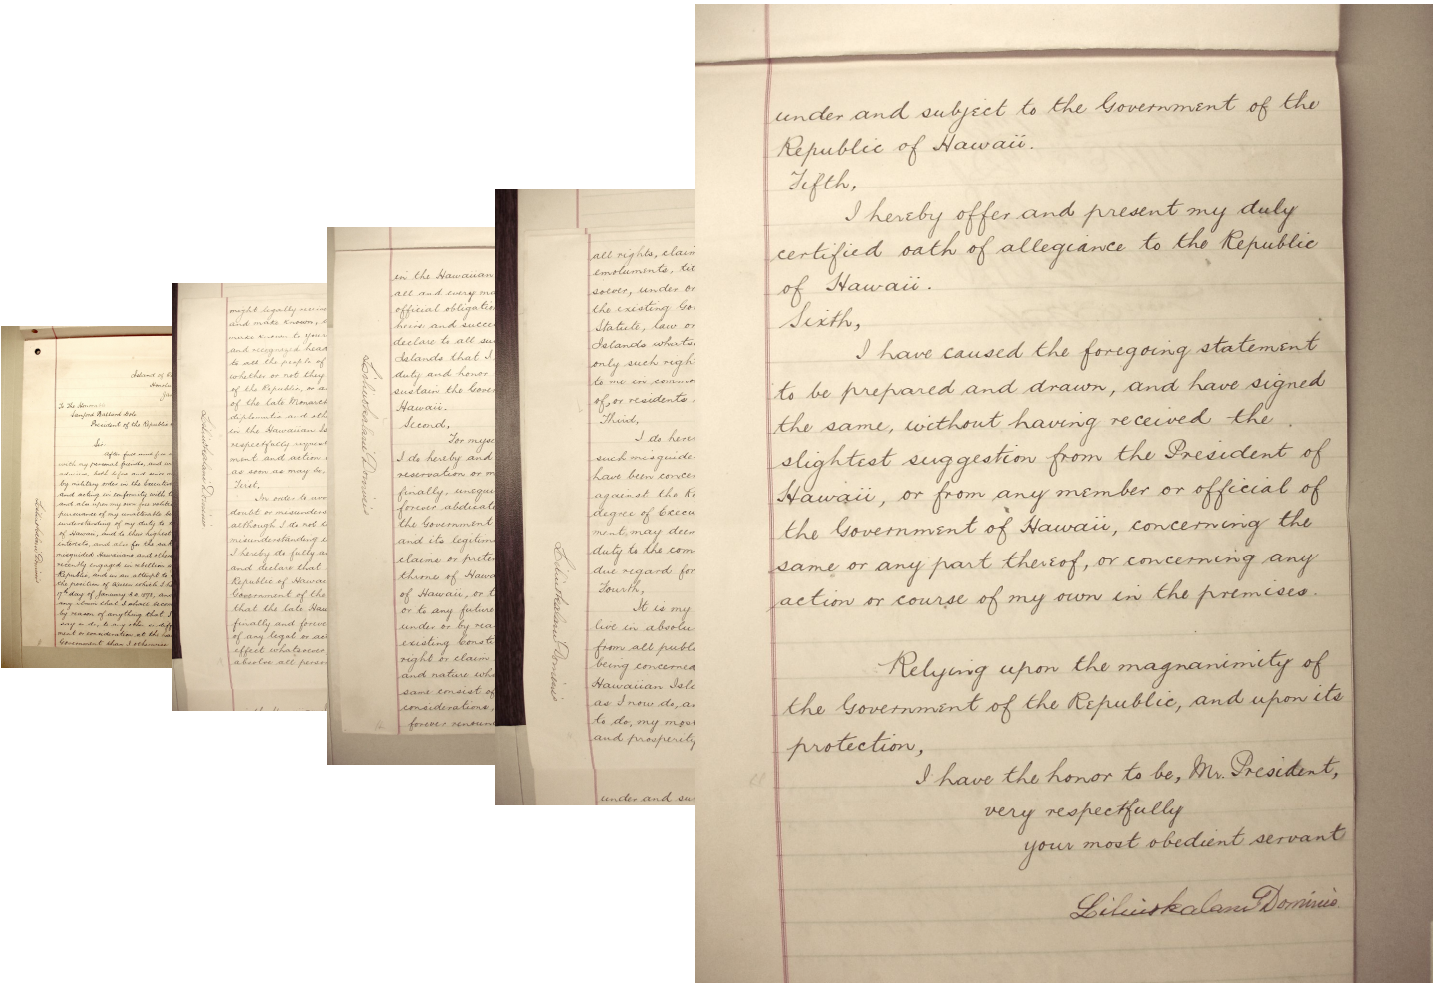 Island of
Honolu
To The Honorable
Sanford Ballard Dole
President of the Republic
Sir
After full and free
with my personal friends, and
by military order in the Executive
and acting in conformity with
and also upon my own free volition
pursuance of my unalterable
understanding of my duty to
of Hawaii, and to their highest
interests, and also for the sake
misguided Hawaiians and others
recently engaged in rebellion
Republic, and in an attempt to
the position of Queen which I
17th day of January A.D. 1893, and
any claim that I
by reason of anything that I
say or do, to any other or
ment or consideration at the
Government than I otherwise
Liliuokalani Dominis
might legally receive
and make known,
make known to your
and recognized head
to all the people of
whether or not they
of the Republic, or
of the late Monarch
diplomatic and oth
in the Hawaiian Is
respectfully request
ment and action
as soon as may be,
First,
In order to avo
doubt or misunders
although I do not
misunderstanding
I hereby do fully a
and declare that
Republic of Hawa
Government of the
that the late Haw
finally and foreve
of any legal or ac
effect whatsoever
absolve all person
Liliuokalani Dominis
in the Hawaiian
all and every ma
official obligatio
heirs and succe
declare to all su
Islands that I
duty and honor
sustain the Gover
Hawaii.
Second,
For myse
I do hereby and
reservation or m
finally, unequi
forever abdicate
the Government
and its legitim
claims or prete
throne of Hawa
of Hawaii, or t
or to any future
under or by rea
existing Consti
right or claim
and nature wha
same consist of
considerations,
forever renoun
Liliuokalani Dominis
all rights, claim
emoluments, tit
soever, under or
the existing Go
Statute, law or
Islands whats
only such righ
to me in commo
of, or residents
Third,
I do here
such misguide
have been conce
against the Re
degree of Execu
ment, may deem
duty to the com
due regard for
Fourth,
It is my
live in absolu
from all publ
being concerned
Hawaiian Isla
as I now do, a
to do, my most
and prosperity
under and su
Liliuokalani Dominis
under and subject to the Government of the
Republic of Hawaii.
Fifth,
I hereby offer and present my duly
certified oath of allegiance to the Republic
of Hawaii.
Sixth,
I have caused the foregoing statement
to be prepared and drawn, and have signed
the same, without having received the
slightest suggestion from the President of
Hawaii, or from any member or official of
the Government of Hawaii, concerning the
same or any part thereof, or concerning any
action or course of my own in the premises.
Relying upon the magnanimity of
the Government of the Republic, and upon its
protection,
I have the honor to be, Mr. President,
very respectfully
your most obedient servant
Liliuokalani Dominis